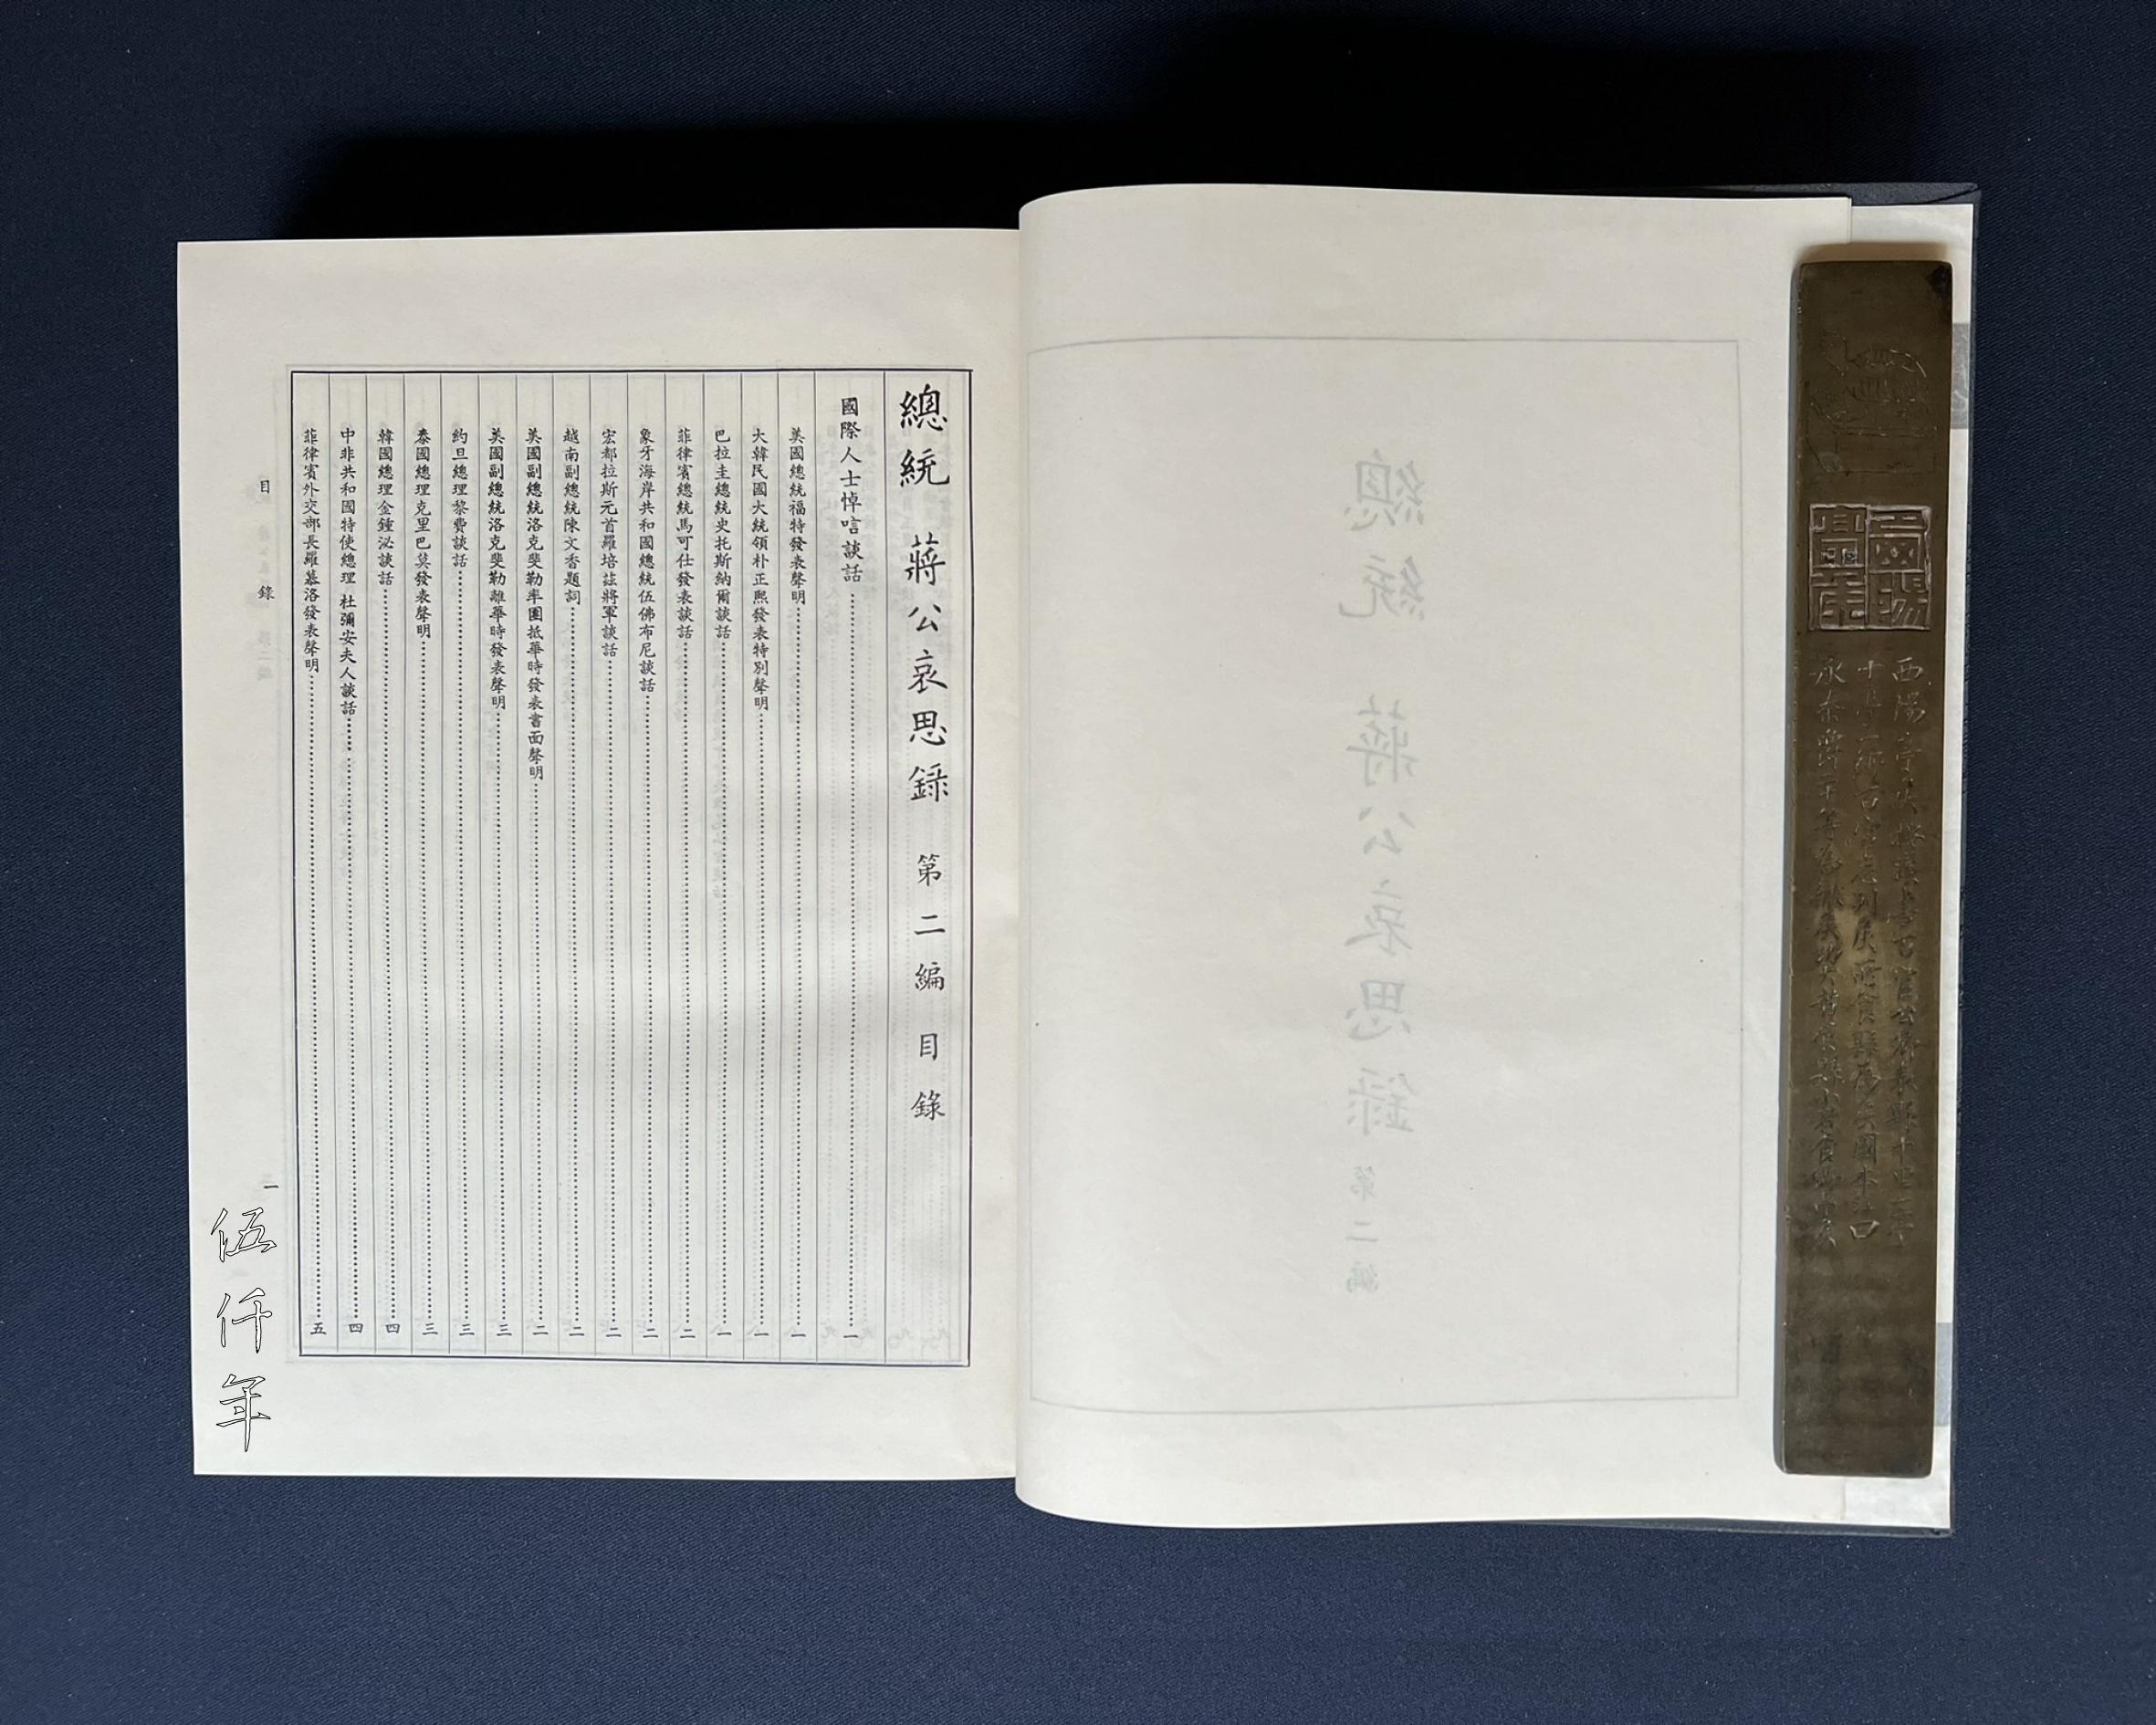 總統 蔣公哀思錄 第二編 目錄
國際人士悼唁談話……一
美國總統福特發表聲明……一
大韓民國大統領朴正熙發表特別聲明……一
巴拉圭總統史托斯納爾談話……一
菲律賓總統馬可仕發表談話……二
象牙海岸共和國總統伍佛布尼談話……二
宏都拉斯元首羅培茲將軍談話……二
越南副總統陳文香題詞……二
美國副總統洛克斐勒率團抵華時發表書面聲明……二
美國副總統洛克斐勒離華時發表聲明……三
約旦總理黎費談話……三
泰國總理克里巴莫發表聲明……三
韓國總理金鍾泌談話……四
中非共和國特使總理 杜彌安夫人談話……四
菲律賓外交部長羅慕洛發表聲明……五
目 錄
一
伍仟年
總統 蔣公哀思錄 第二編